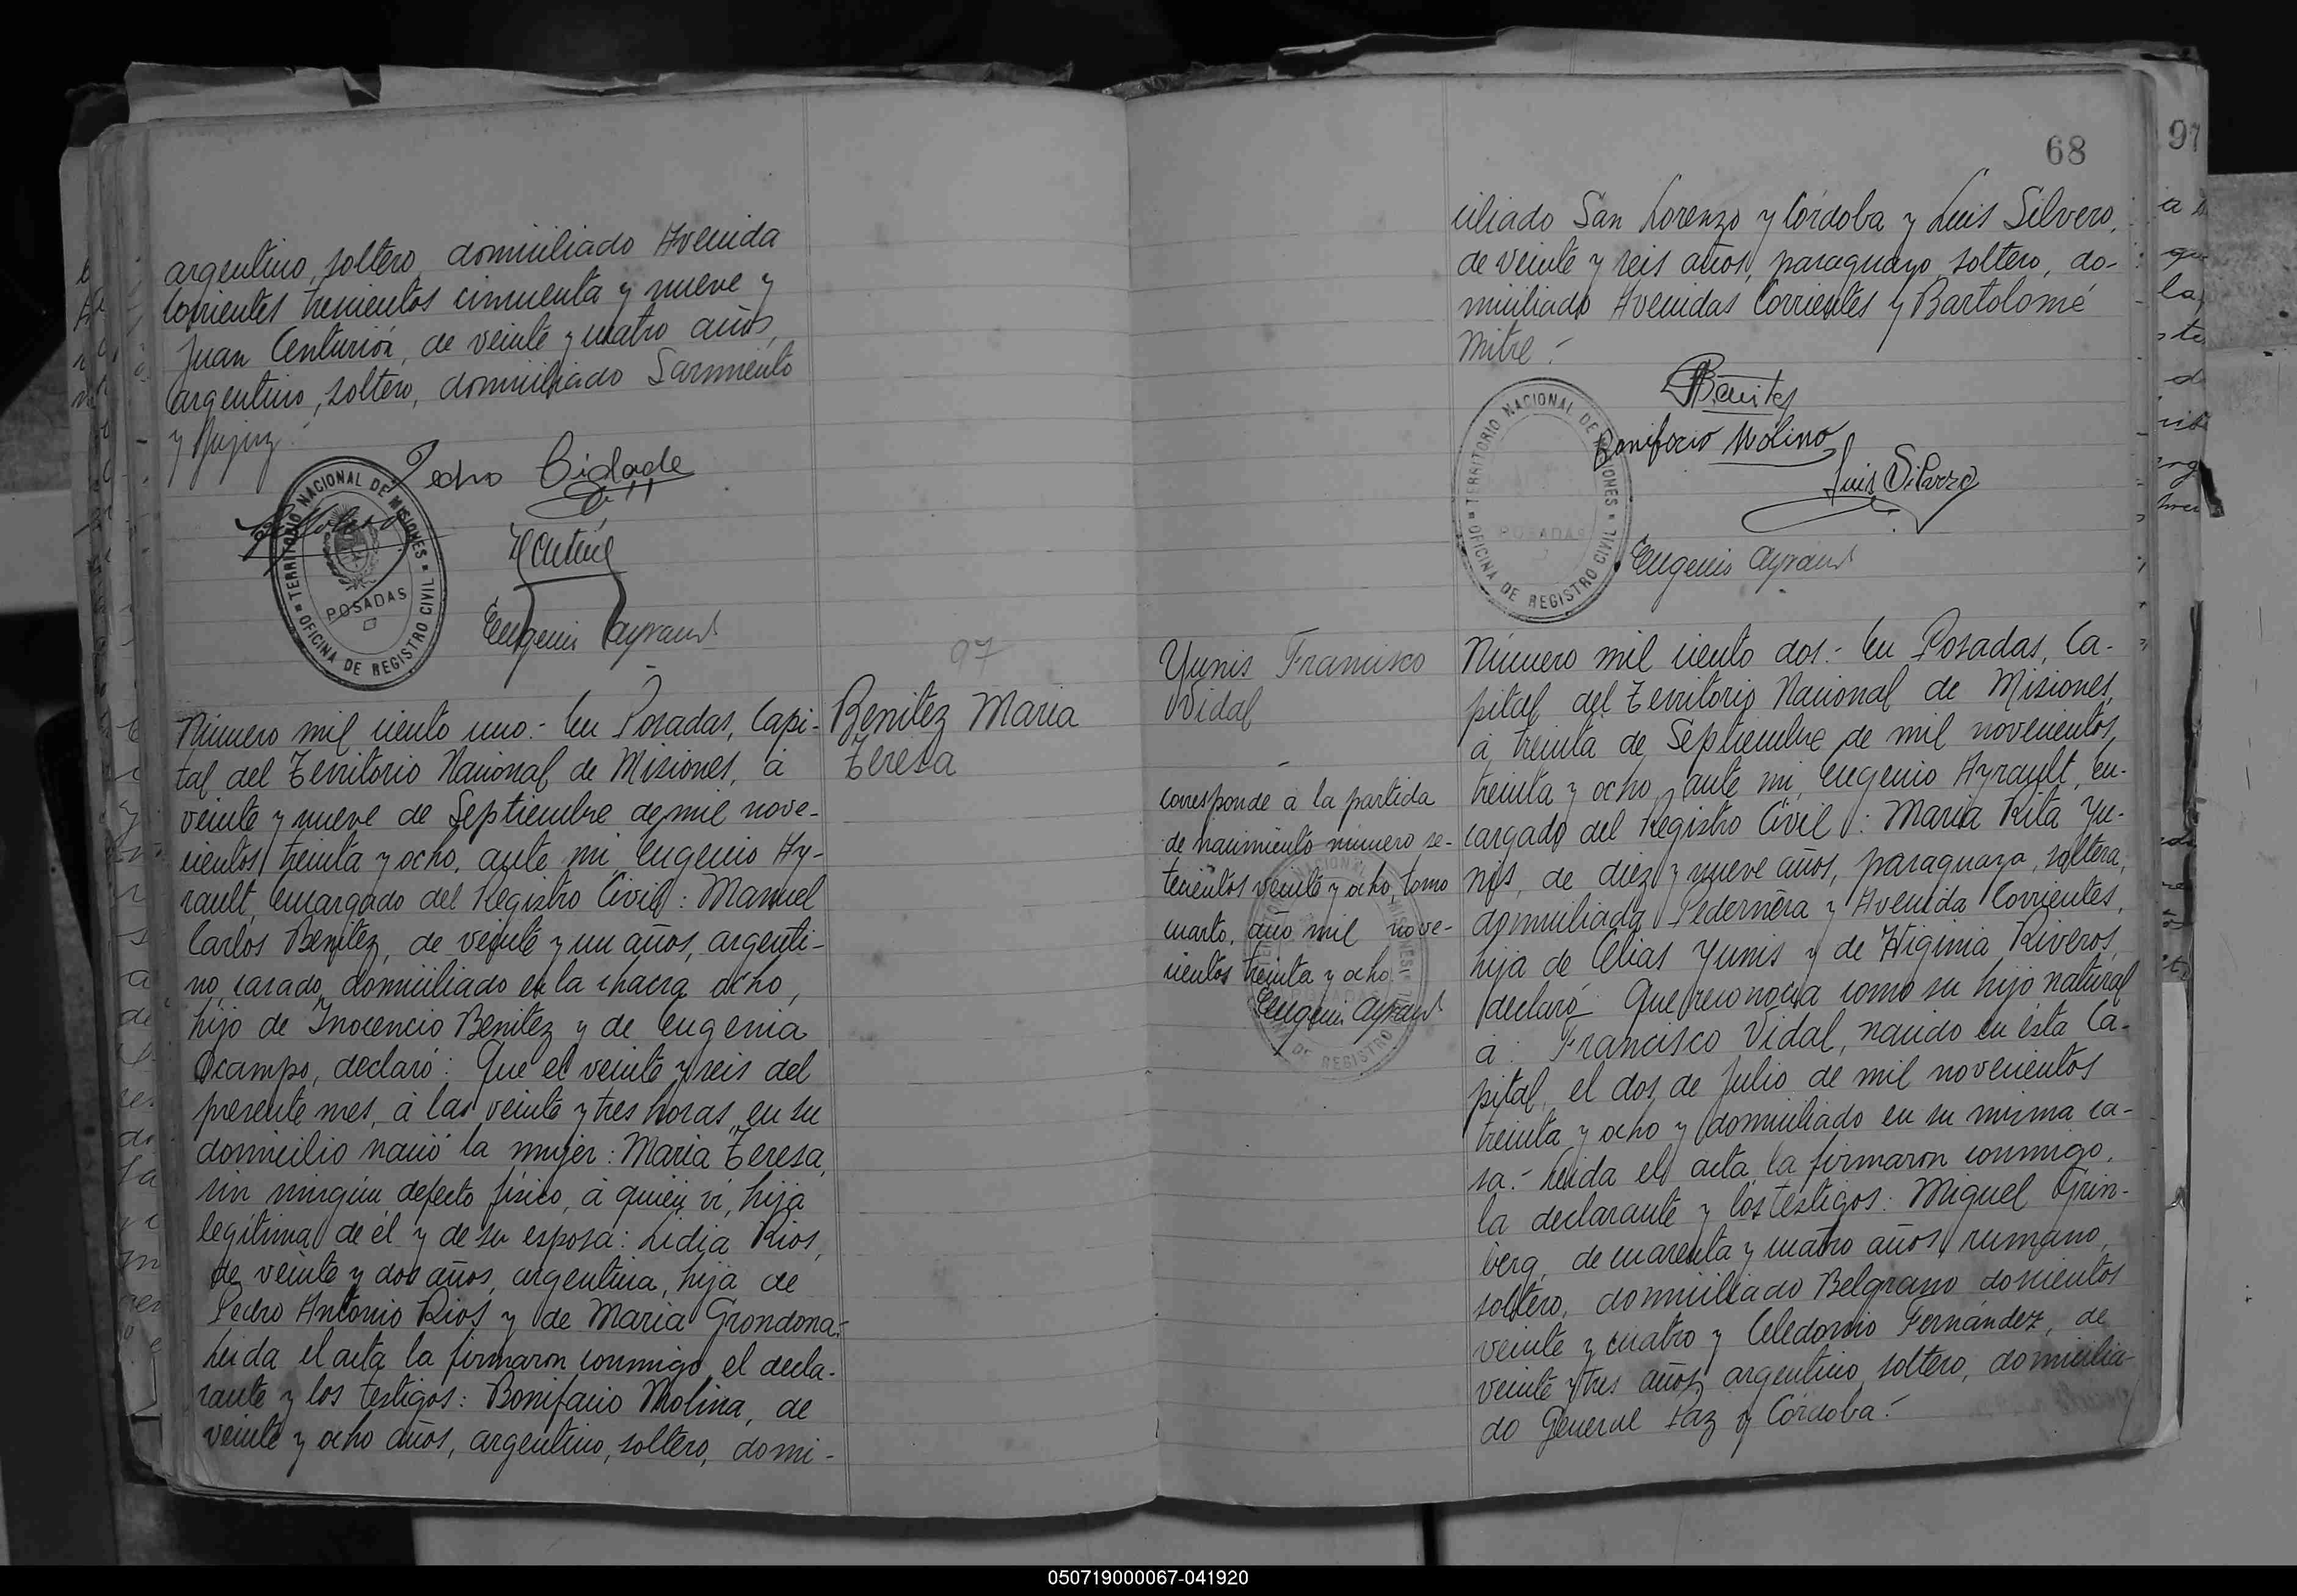 argentino, soltero, domiciliado Avenida
Corrientes trescientos cincuenta y nueve y
Juan Centurión, de veinte y cuatro años,
argentino, soltero, domiciliado Sarmiento
y Jujuy.-
TERRITORIO NACIONAL DE MISIONES
POSADAS
OFICINA DE REGISTRO CIVIL
Pedro
Eugenio Ayrault
97
Benitez Maria
Teresa
Número mil ciento uno:- En Posadas, Capi-
tal del Territorio Nacional de Misiones, á
veinte y nueve de Septiembre de mil nove-
cientos treinta y ocho, ante mi, Eugenio Ay-
rault, Encargado del Registro Civil: Manuel
Carlos Benitez, de veinte y un años, argenti-
no, casado, domiciliado en la chacra ocho,
hijo de Inocencio Benitez y de Eugenia
Ocampo, declaró: Que el veinte y seis del
presente mes, á las veinte y tres horas, en su
domicilio nació la mujer: Maria Teresa,
sin ningún defecto físico, á quién ví, hija
legítima de él y de su esposa: Lidia Rios,
de veinte y dos años, argentina, hija de
Pedro Antonio Rios y de Maria Grondona.-
Leida el acta la firmaron conmigo, el decla-
rante y los testigos: Bonifacio Molina, de
veinte y ocho años, argentino, soltero, domi-
68
97
ciliado San Lorenzo y Córdoba y Luis Silvero,
de veinte y seis años, paraguayo, soltero, do-
miciliado Avenidas Corrientes y Bartolomé
Mitre.-
Benitez
Bonifacio Molina
Luis Silvero
TERRITORIO NACIONAL DE MISIONES
POSADAS
OFICINA DE REGISTRO CIVIL
Eugenio Ayrault
Yunis Francisco
Vidal
corresponde á la partida
de nacimiento número se-
tecientos veinte y ocho, tomo
cuarto, año mil nove-
cientos treinta y ocho.
Eugenio Ayrault
DE REGISTRO
Número mil ciento dos:- En Posadas, Ca-
pital del Territorio Nacional de Misiones,
á treinta de Septiembre de mil novecientos,
treinta y ocho, ante mi, Eugenio Ayrault, En-
cargado del Registro Civil: Maria Rita Yu-
nis, de diez y nueve años, paraguaya, soltera,
domiciliada Pedernera y Avenida Corrientes,
hija de Elias Yunis y de Higinia Riveros,
declaró: Que reconocia como su hijo natural
á: Francisco Vidal, nacido en ésta Ca-
pital, el dos de Julio de mil novecientos
treinta y ocho y domiciliado en su misma ca-
sa.- Leida el acta la firmaron conmigo,
la declarante y los testigos: Miguel Grin-
berg, de cuarenta y cuatro años, rumano,
soltero, domiciliado Belgrano doscientos
veinte y cuatro y Celedonio Fernández, de
veinte y tres años, argentino, soltero, domicilia-
do General Paz y Córdoba.-
050719000067-041920